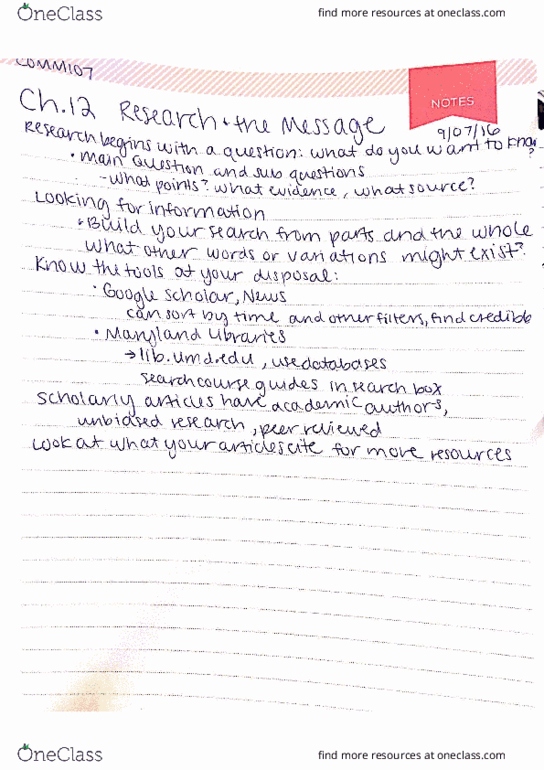 OneClass
find more resources at oneclass.com
COMM107
NOTES
Ch.12 Research + the Message
9/07/16
Research begins with a question: what do you want to know?
• main question and sub questions
- what points? what evidence, what source?
Looking for information
• Build your search from parts and the whole
what other words or variations might exist?
Know the tools at your disposal:
• Google Scholar, News
can sort by time and other filters, find credible
• Maryland Libraries
→ lib.umd.edu, use databases
search course guides in search box
Scholarly articles have academic authors,
unbiased research, peer reviewed
Look at what your articles cite for more resources
OneClass
find more resources at oneclass.com